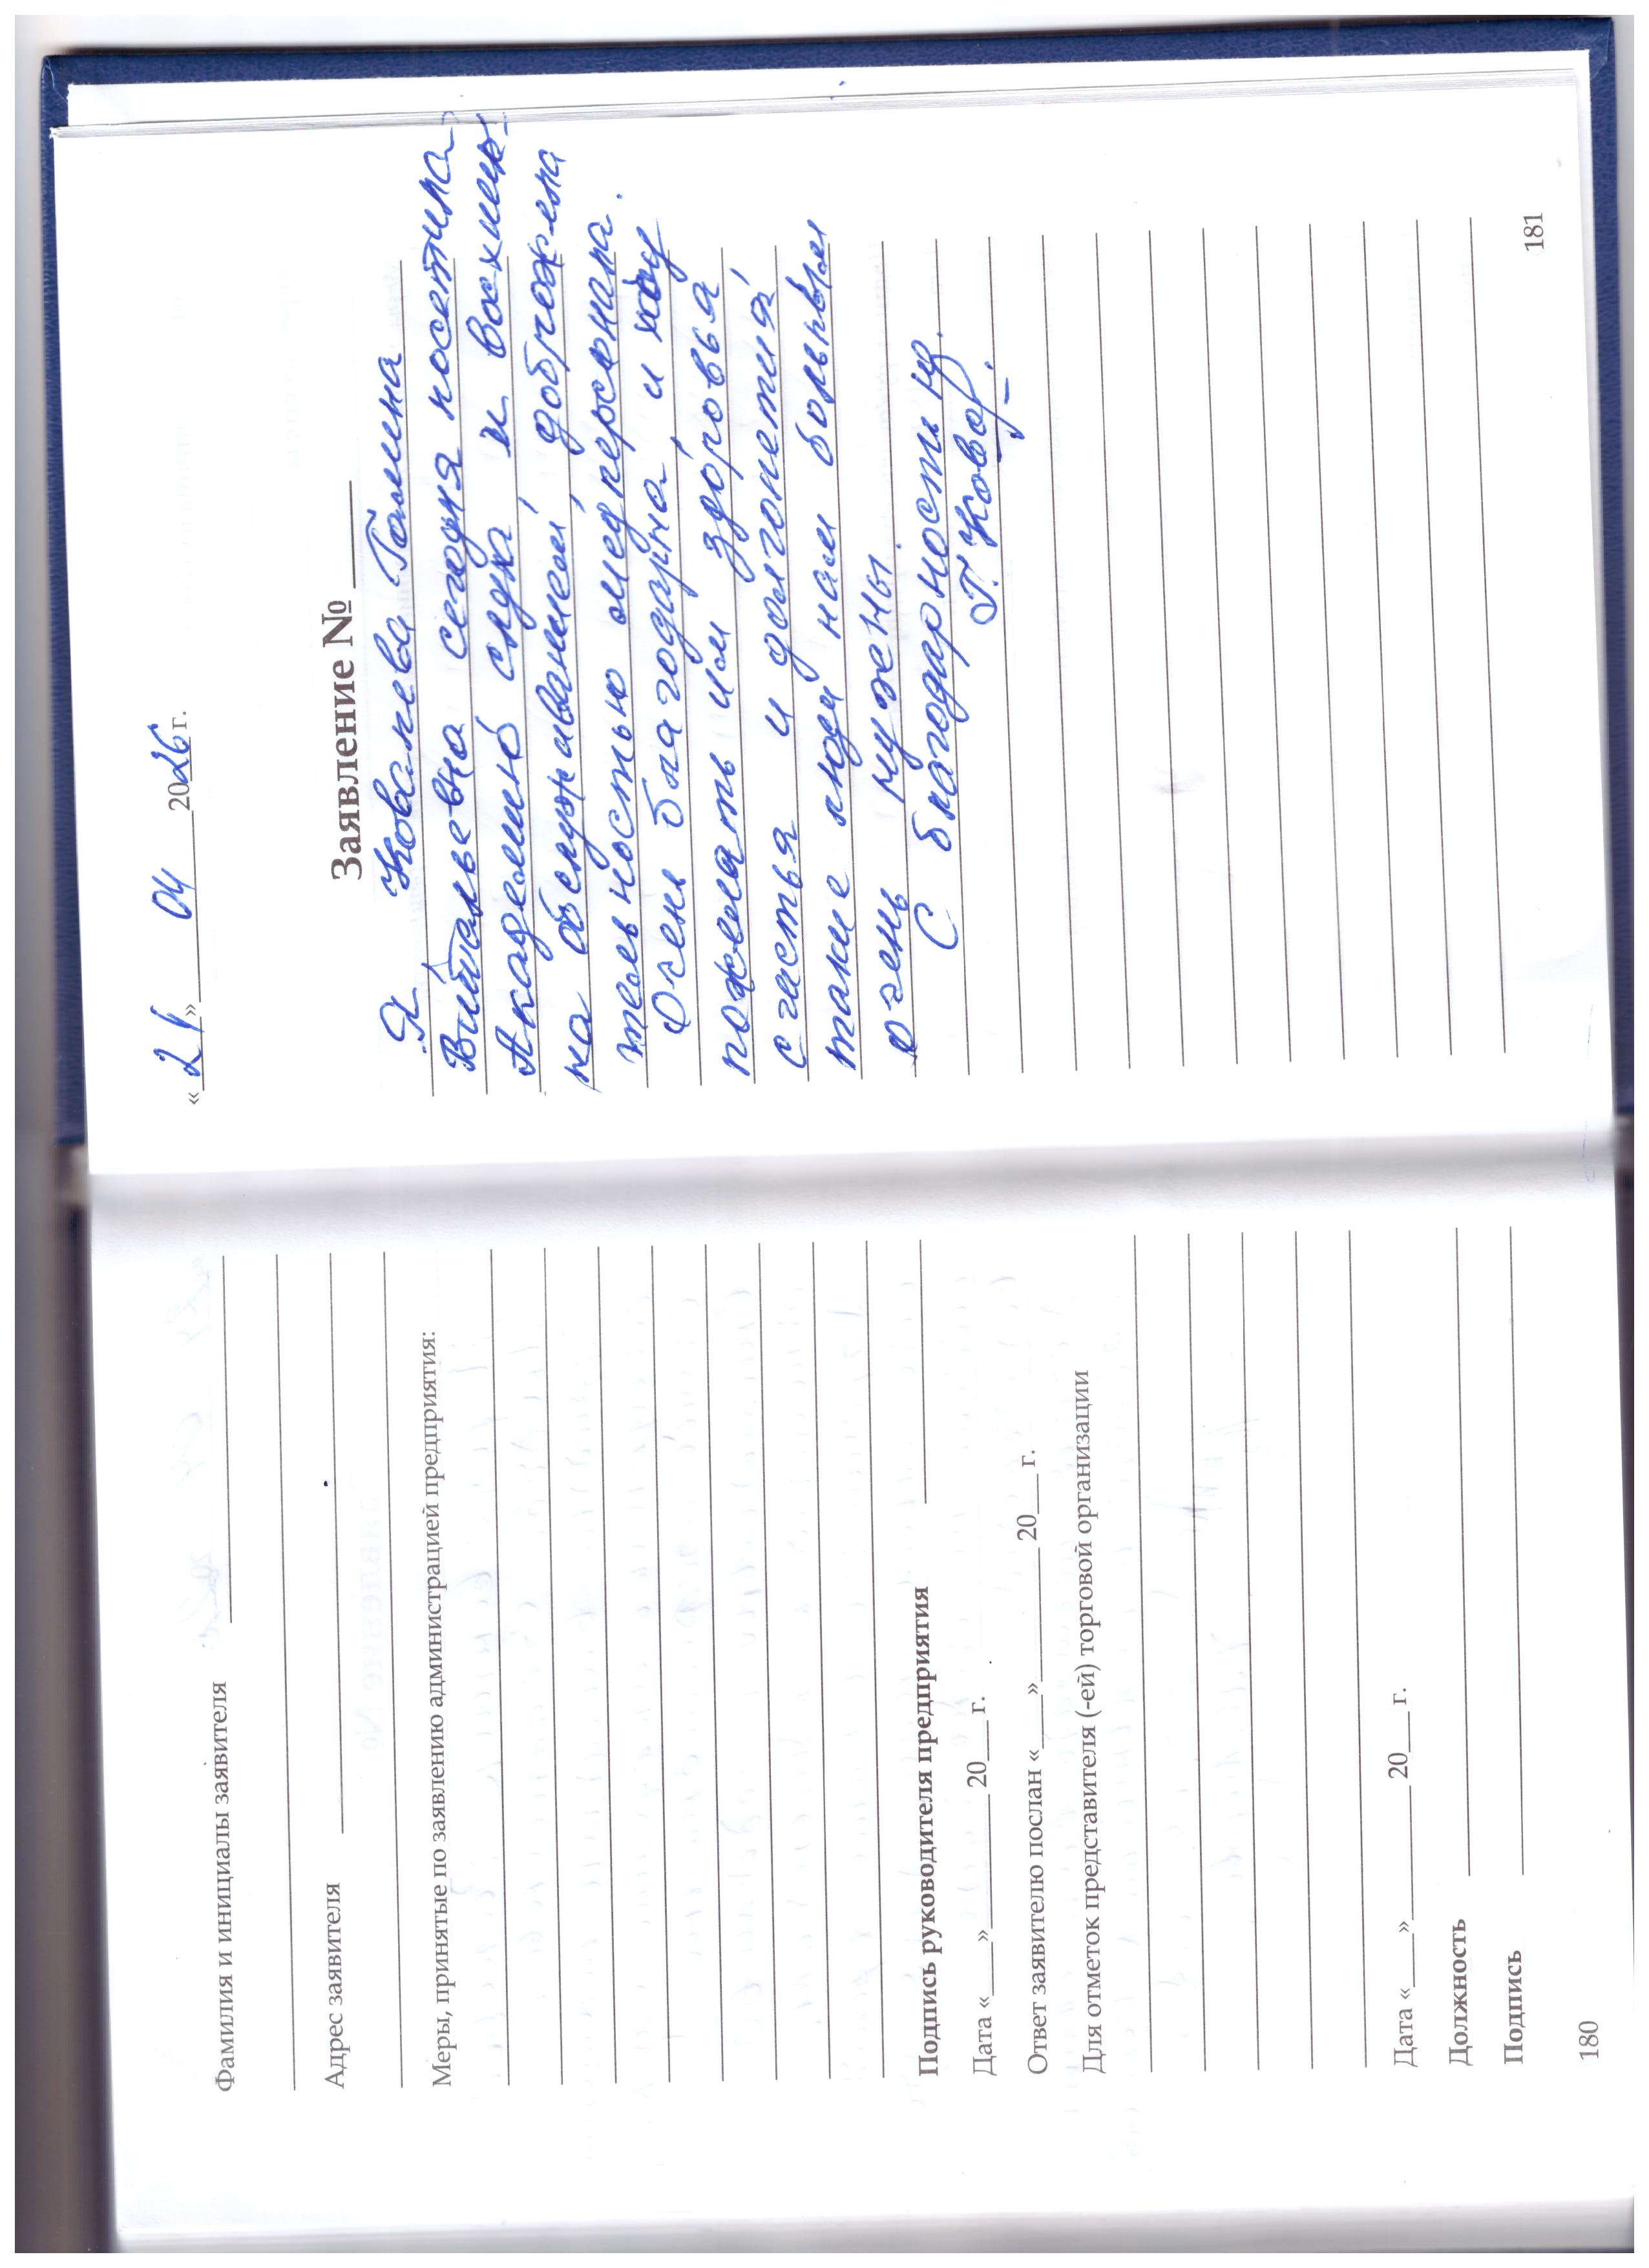 Фамилия и инициалы заявителя
Адрес заявителя
Меры, принятые по заявлению администрацией предприятия:
Подпись руководителя предприятия
Дата «___»________ 20___г.
Ответ заявителю послан «___»________ 20___ г.
Для отметок представителя (-ей) торговой организации
Дата «___»________ 20___г.
Должность
Подпись
180
«21» 04 2026 г.
Заявление №
Я Ковалева Галина
Витальевна сегодня посетила
Академию слуха и восхище-
на обслуживанием, доброжела
тельностью медперсонала.
Очень благодарна, и хочу
пожелать им здоровья,
счастья и долголетия
такие люди нам больным
очень нужны.
С благодарностью.
Г. Ковал
181